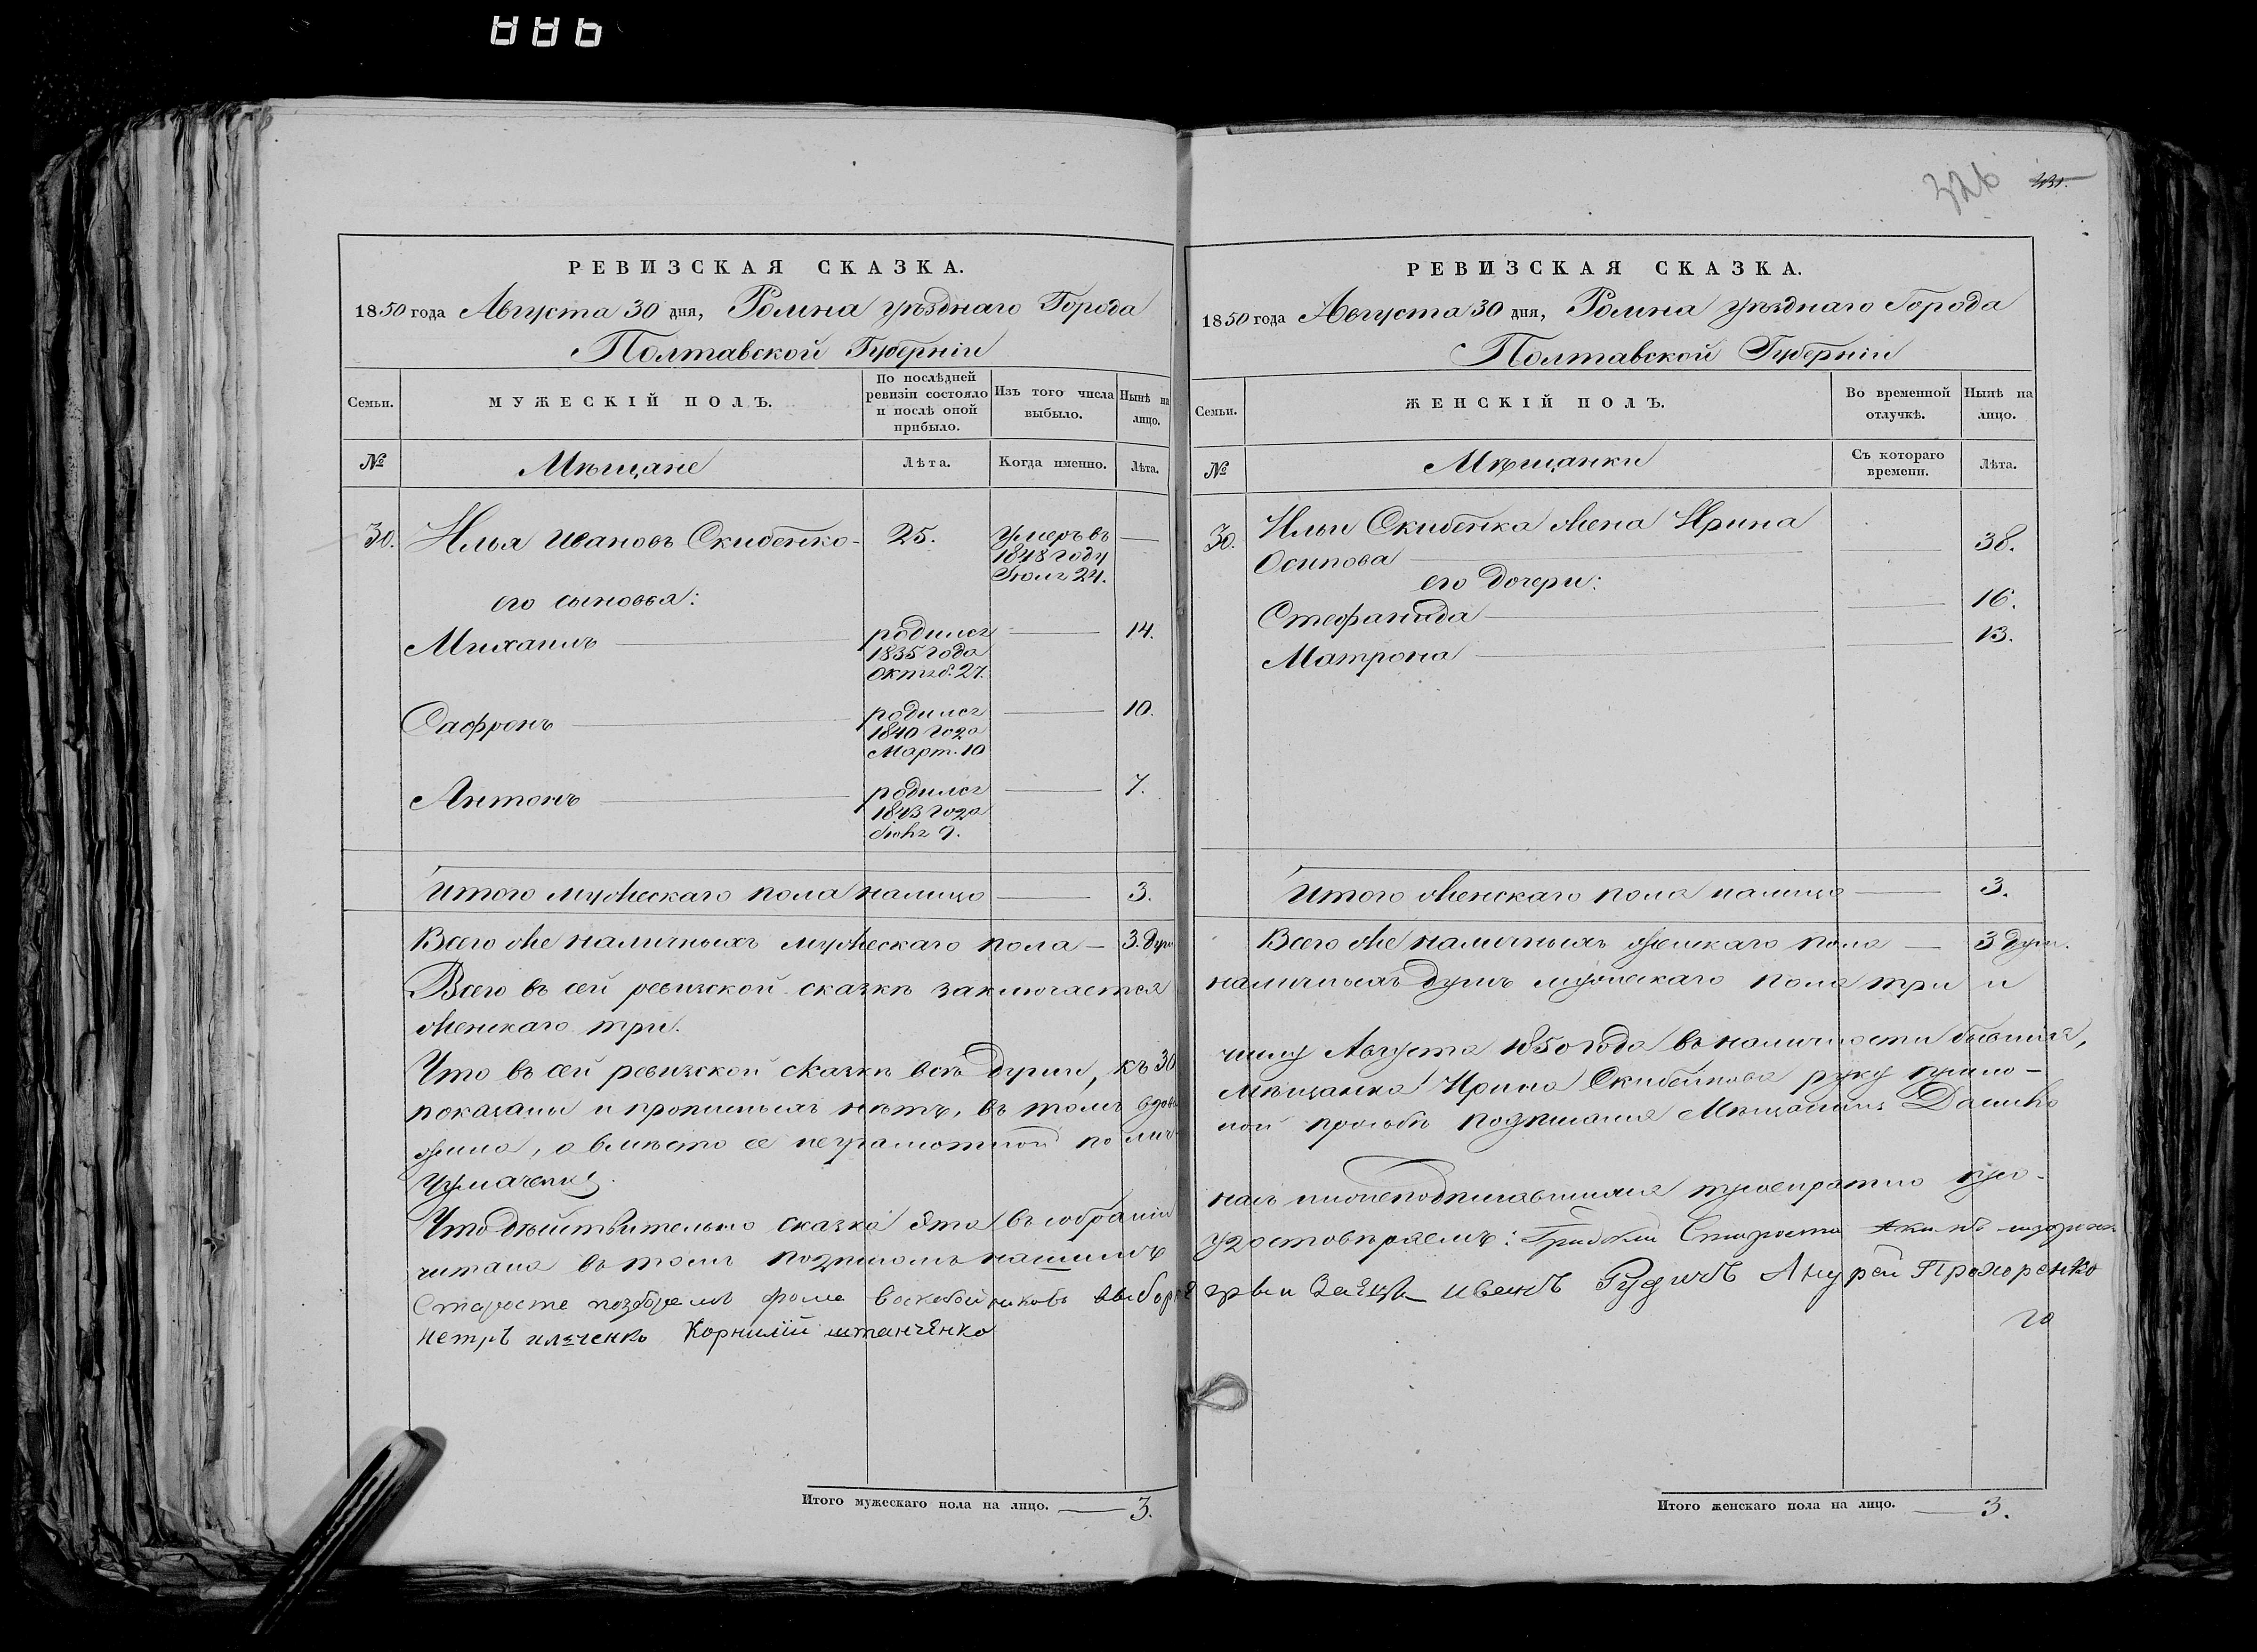 886
326
РЕВИЗСКАЯ СКАЗКА.
1850 года Августа 30 дня, Ромна уѣзднаго Города
Полтавской Губерніи
Семьи.
МУЖЕСКІЙ ПОЛЪ.
По послѣдней ревизіи состояло и послѣ оной прибыло.
Изъ того числа выбыло.
Нынѣ на лицо.
№
Мѣщане
Лѣта.
Когда именно.
Лѣта.
30. Илья Ивановъ Скибенко 25. Умеръ въ
1848 году
Іюля 24.
его сыновья:
Михаилъ родился 14.
1835 года
Октяб. 27.
Сафронъ родился 10.
1840 года
Март. 10
Антонъ родился 7.
1843 года
Іюня 9.
Итого мужескаго пола налицо 3.
Всего же наличныхъ мужескаго пола 3. душ
Всего въ сей ревизской сказкѣ заключается
женскаго три.
Что въ сей ревизской сказкѣ всѣ души, къ 30
показаны и прописныхъ нѣтъ, въ томъ вдова
жила, а вмѣсто ее неграмотной по лич
Чумаченко.
Что дѣйствительно сказка эта въ собраніи
читана въ томъ подписомъ нашимъ
Старосте Фома Воскобойниковъ выборные
Петръ Корнилій штанченко
Итого мужескаго пола на лицо. 3.
РЕВИЗСКАЯ СКАЗКА.
1850 года Августа 30 дня, Ромна уѣзднаго Города
Полтавской Губерніи
Семьи.
ЖЕНСКІЙ ПОЛЪ.
Во временной отлучкѣ.
Нынѣ на лицо.
№
Мѣщанки
Съ котораго времени.
Лѣта.
30. Ильи Скибенка жена Ирина
Осипова 38.
его дочери:
Стефанида 16.
Матрона 13.
Итого женскаго пола налицо 3.
Всего же наличныхъ женскаго пола 3 душ.
наличныхъ душъ мужескаго пола три и
числу Августа 1850 года въ наличности бывшія,
Мѣщанка Ирина Скибенкова руку прило-
ной прозьбѣ подписался Мѣщанинъ Данило
нами нижеподписавшимися троекратно про-
удостовѣряемъ: Градской Староста
Иванъ Рудичъ Андрей Прохоренко
го
Итого женскаго пола на лицо. 3.